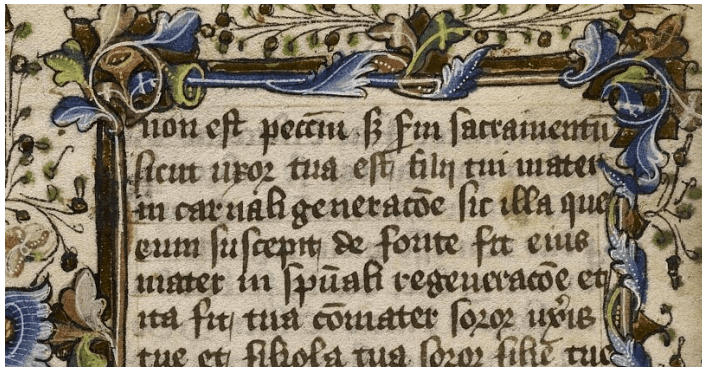 non est peccm̄ sꝫ scḋm sacramentū
sicut uxor tua est filij tui mater
in carnali generacōe sic illa que
eum suscepit de fonte fit eius
mater in spūali regeneracōe et
ita fit tua cōmater soror uxīs
tue et filiola tua soror filie tue